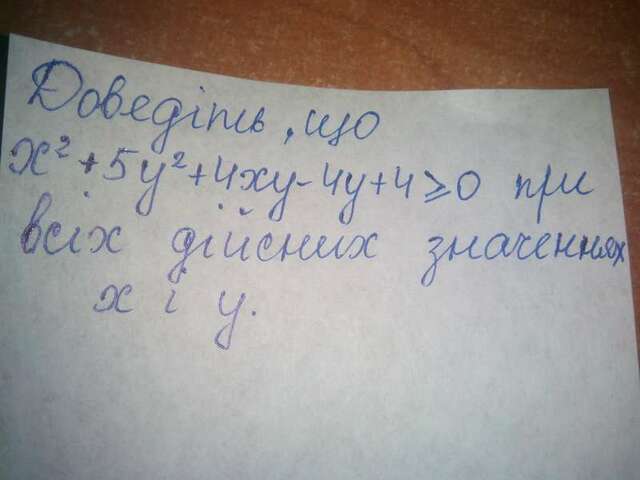 Доведіть, що
x²+5y²+4xy-4y+4⩾0 при
всіх дійсних значеннях
x і y.